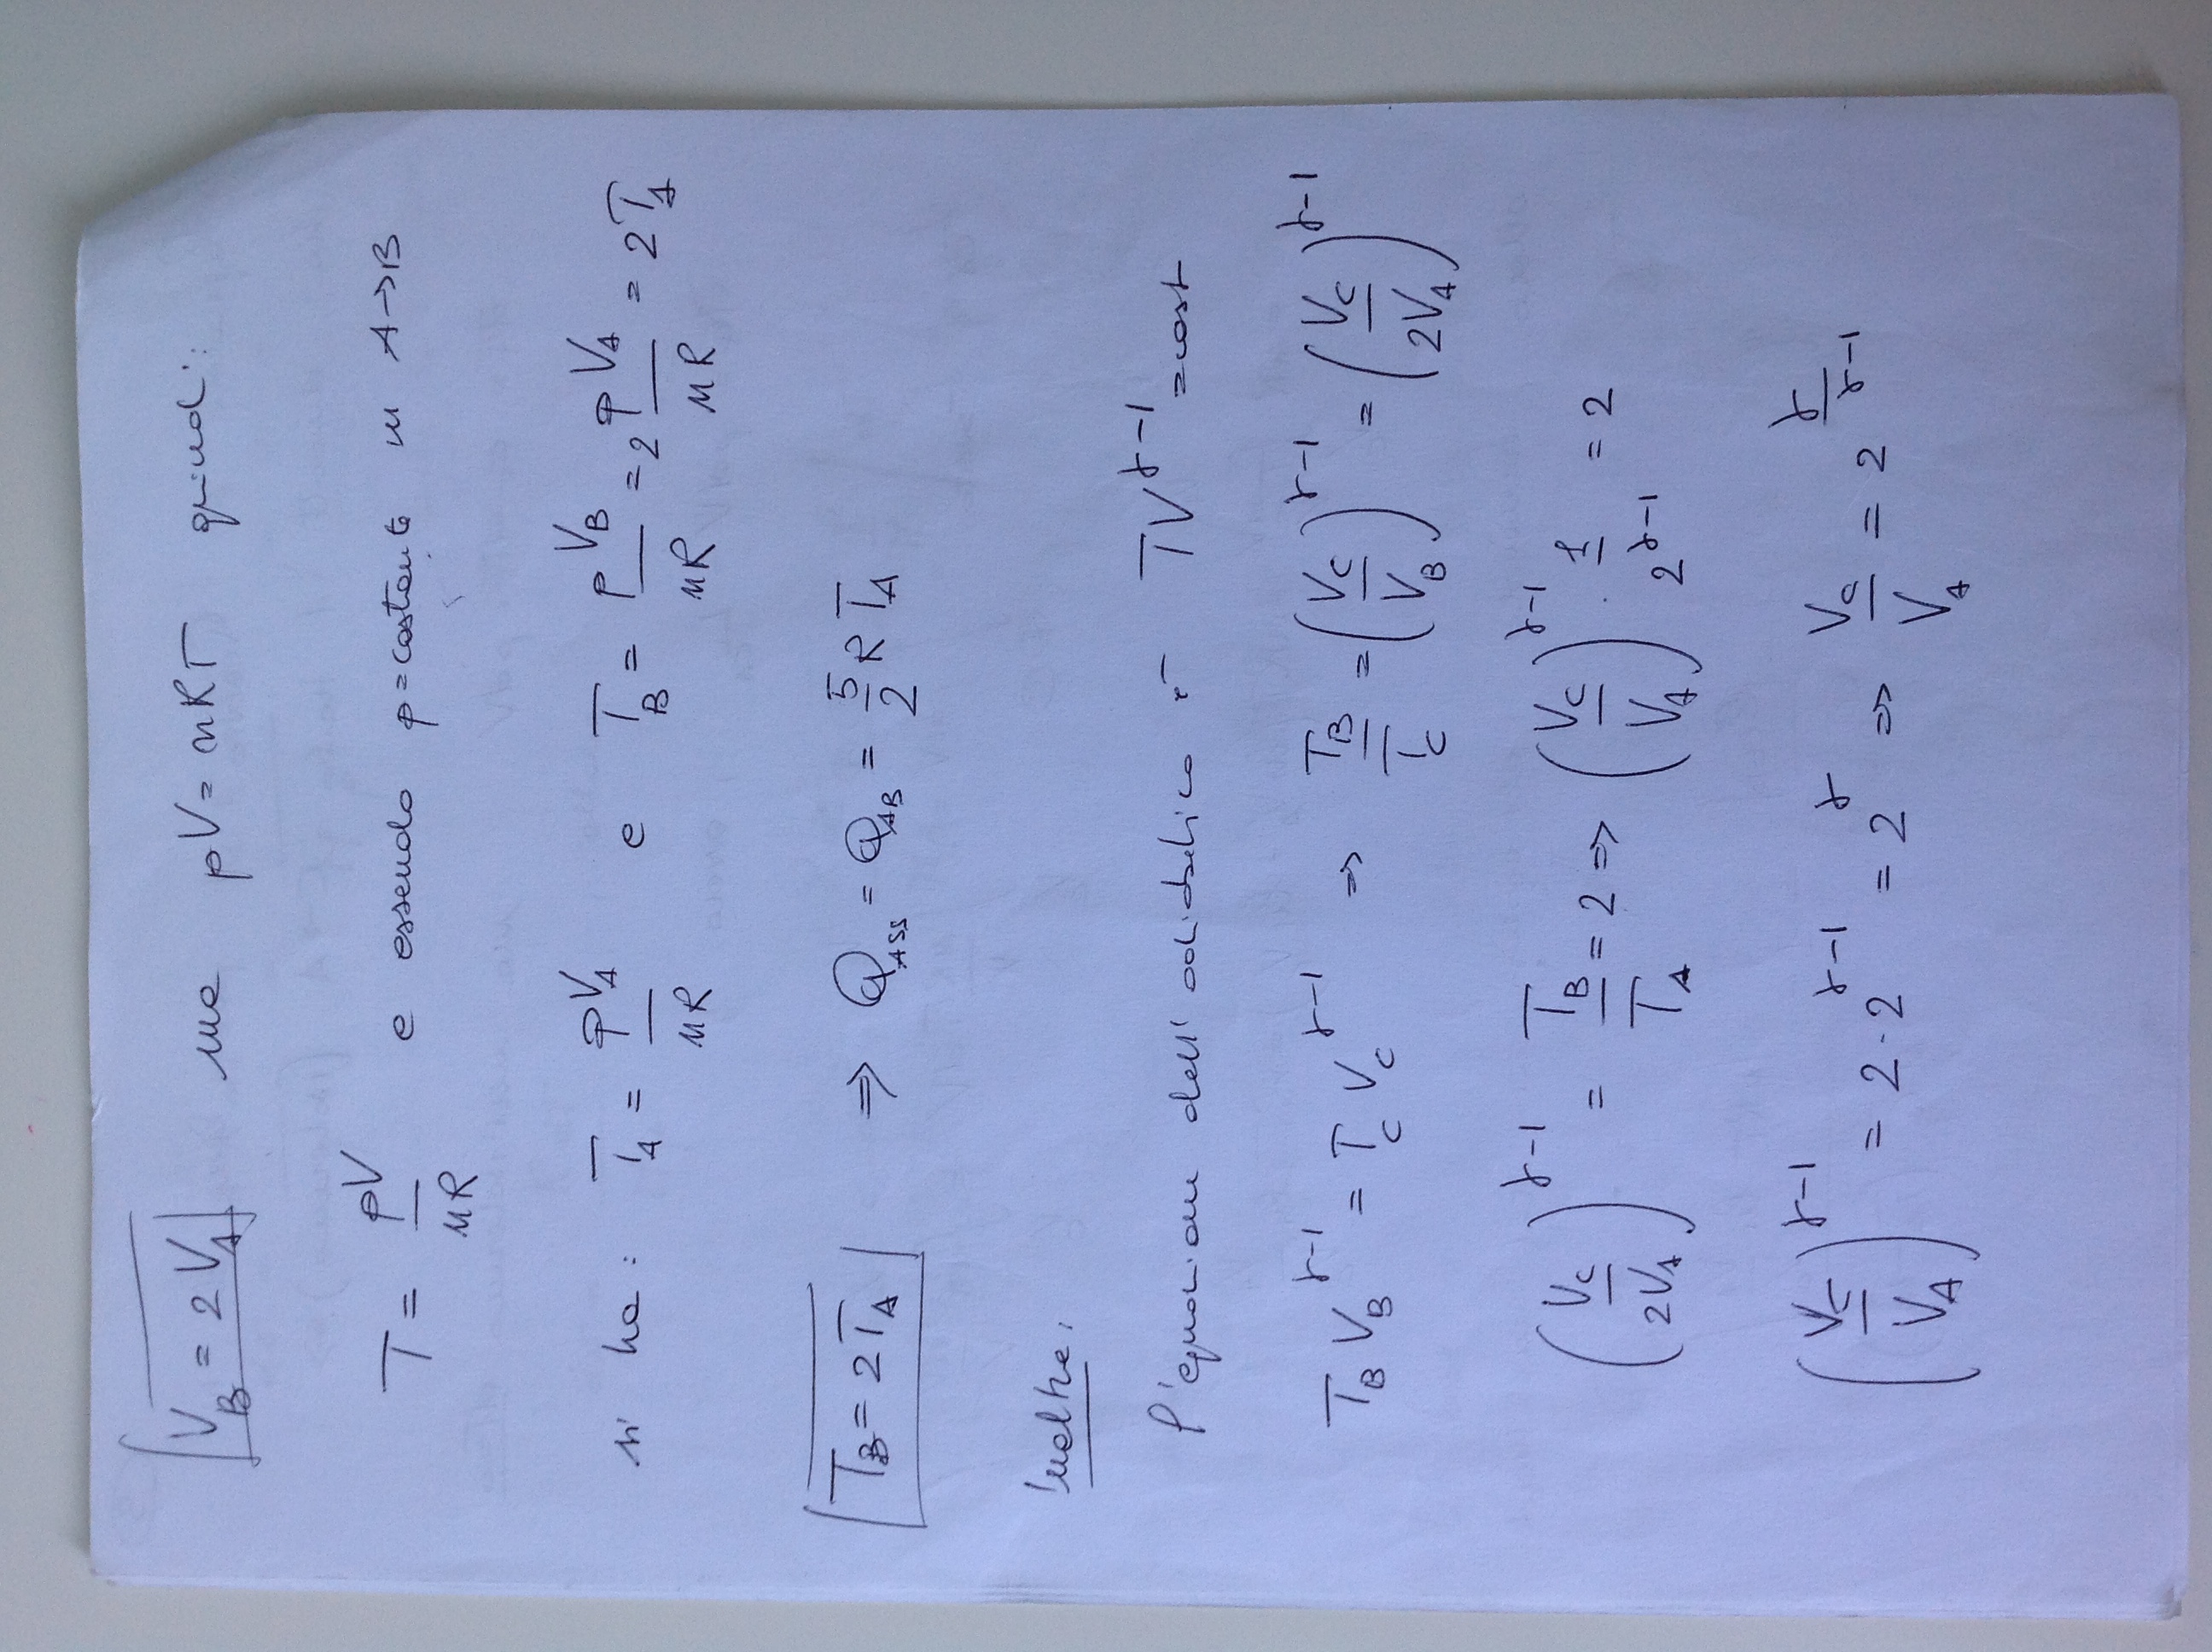 V_B = 2 V_A ma pV = nRT quindi:
T = pV/nR e essendo p=costante in A→B
si ha: T_A = pV_A/nR e T_B = pV_B/nR = 2 pV_A/nR = 2T_A
T_B = 2T_A ⇒ Q_ASS = Q_AB = 5/2 R T_A
Inoltre:
l'equazione dell'adiabatica è TV^(γ-1) = cost
T_B V_B^(γ-1) = T_C V_C^(γ-1) ⇒ T_B/T_C = (V_C/V_B)^(γ-1) = (V_C/2V_A)^(γ-1)
(V_C/2V_A)^(γ-1) = T_B/T_A = 2 ⇒ (V_C/V_A)^(γ-1) · 1/2^(γ-1) = 2
(V_C/V_A)^(γ-1) = 2·2^(γ-1) = 2^γ ⇒ V_C/V_A = 2^(γ/(γ-1))